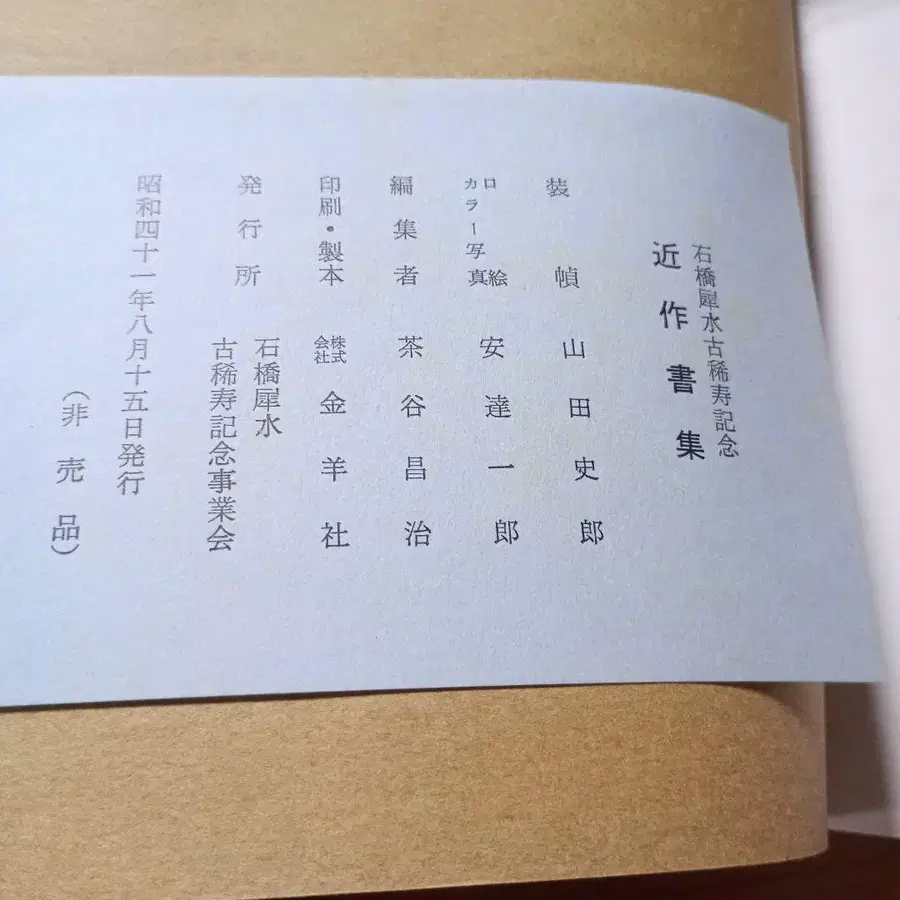 石橋犀水古稀寿記念
近作書集
装幀 山田史郎
口絵
カラー写真 安達一郎
編集者 茶谷昌治
印刷・製本 株式会社 金羊社
発行所 石橋犀水
古稀寿記念事業会
昭和四十一年八月十五日発行
（非売品）